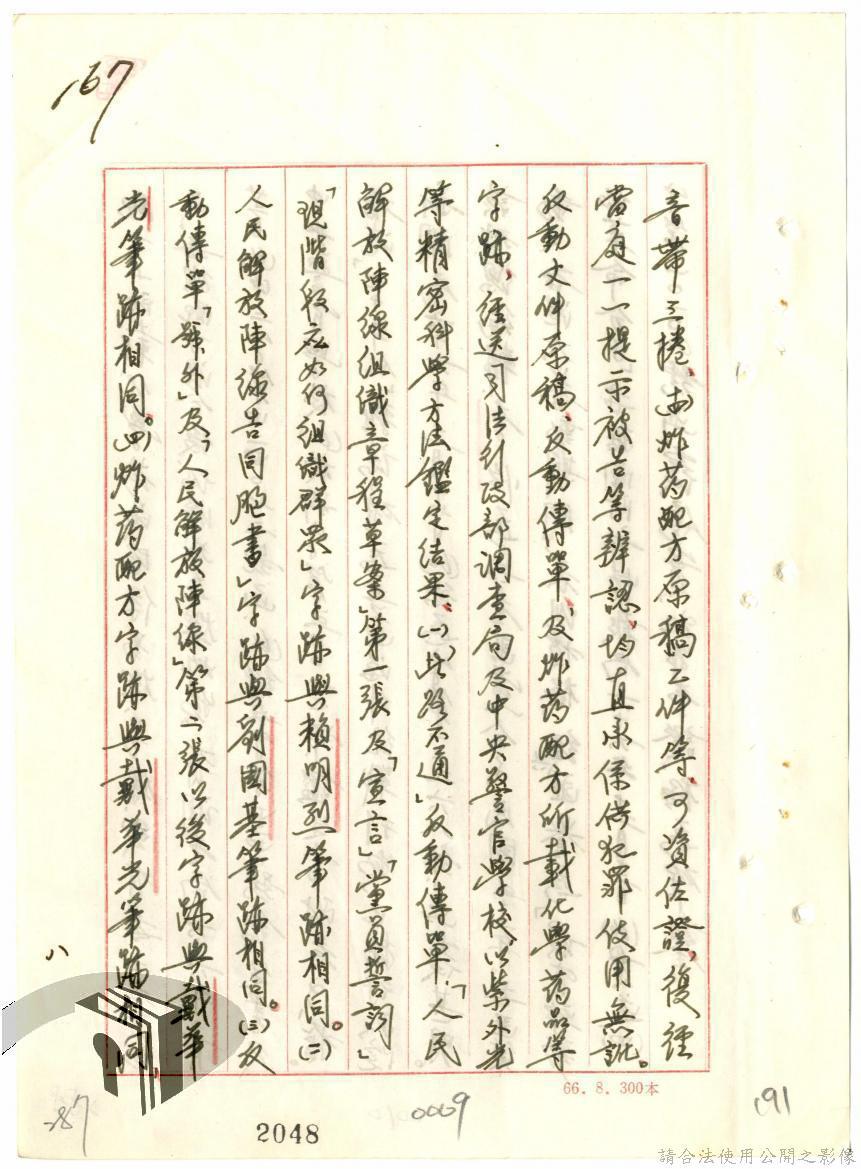 167
音帶三捲、(出)炸葯配方原稿乙件等、可資佐證、復經
當庭一一提示被告等辨認、均直承係供犯罪使用無訛。
反動文件原稿、反動傳單、及炸葯配方所載化學葯品等
字跡、經送司法行政部調查局及中央警官學校以紫外光
等精密科學方法鑑定結果、(一)「此路不通」反動傳單、「人民
解放陣線組織章程草案」第一張及「宣言」「黨員誓詞」
「現階段應如何組織群眾」字跡與賴明烈筆跡相同。(二)
人民解放陣線告同胞書」字跡與劉國基筆跡相同。(三)反
動傳單「號外」及「人民解放陣線」第二張以後字跡與戴華
光筆跡相同。(四)炸葯配方字跡與戴華光筆跡相同、
八
66.8.300本
0009
191
2048
請合法使用公開之影像